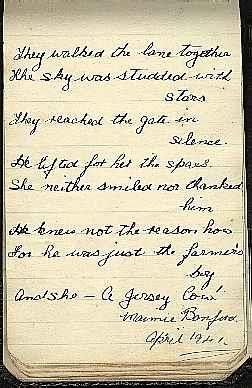 They walked the lane together
The sky was studded with
stars
They reached the gate in
silence.
He lifted for her the spars.
She neither smiled nor thanked
him
He knew not the reason how
For he was just the farmer's
boy
And she - A Jersey Cow!
Maimie Bonford.
April 1941.